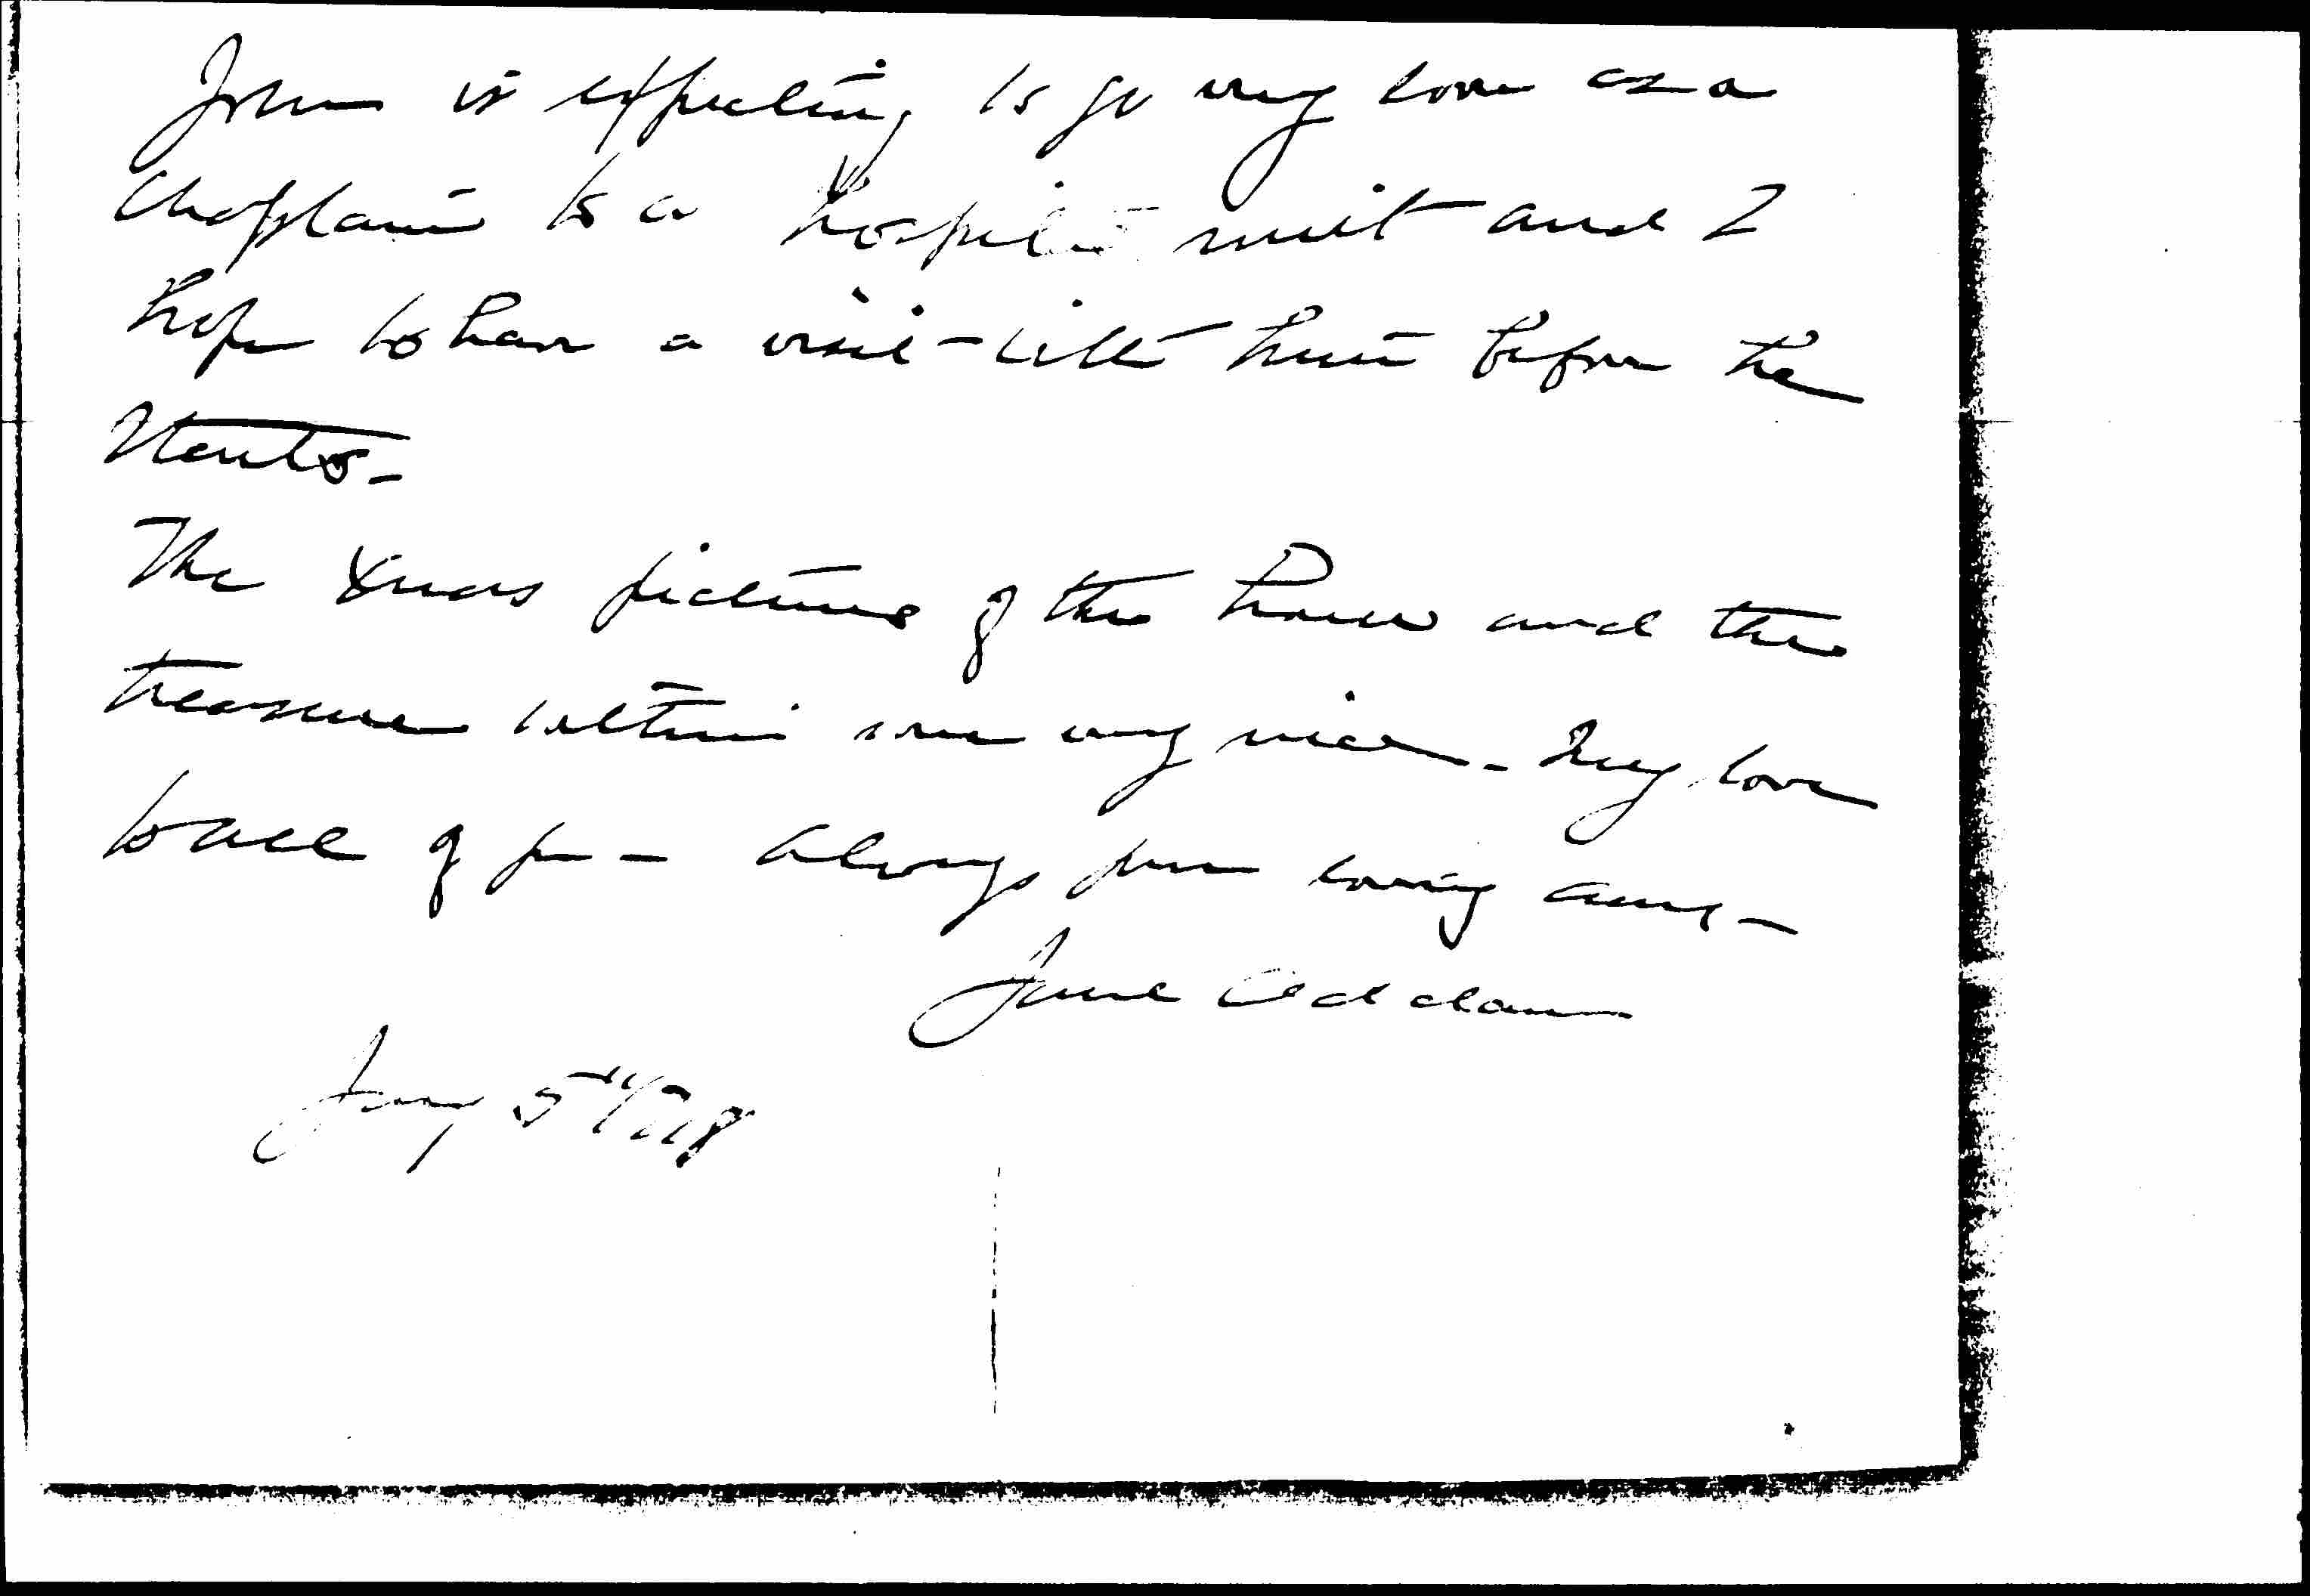 John is expecting to go very soon as a
Chaplain to a hospital unit and I
hope to have a visit with him before he
starts -
The Xmas pictures of the house and the
treasure within were very nice - My love
to all of you - always your loving aunt -
Jane Addams
Jany 5" 1918